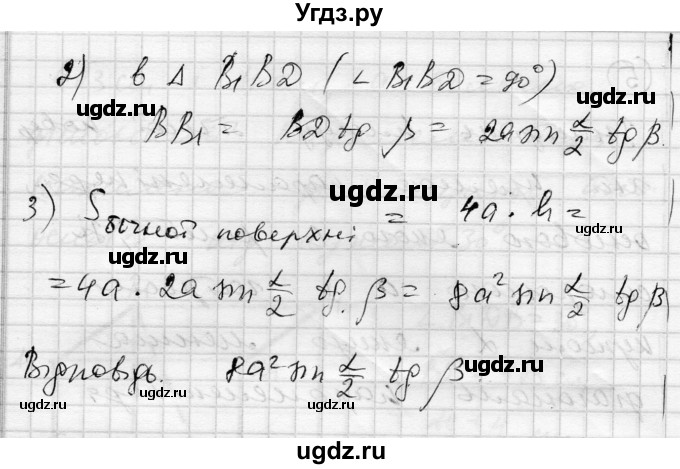 Угдз.ру
2) в Δ B₁BD (∠ B₁BD = 90°)
BB₁ = BD tg β = 2a sin α/2 tg β.
3) Sбічной поверхні = 4a · h =
= 4a · 2a sin α/2 tg. β = 8a² sin α/2 tg β
Відповідь. 8a² sin α/2 tg β
ugdz.ru
ugdz.ru
ugdz.ru
ugdz.ru
ugdz.ru
ugdz.ru
ugdz.ru
ugdz.ru
ugdz.ru
ugdz.ru